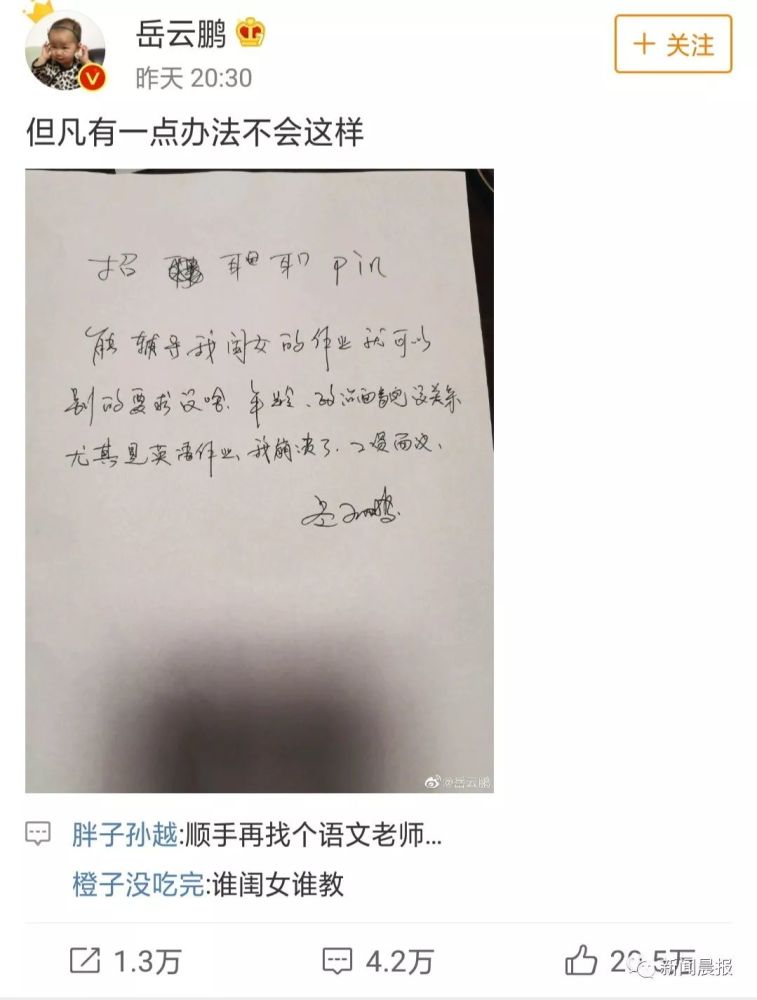 岳云鹏
昨天 20:30
+ 关注
但凡有一点办法不会这样
招 Pin
能辅导我闺女的作业就可以
别的要求没啥.年龄、政治面貌没关系
尤其是英语作业、我崩溃了.工资面议.
岳云鹏
@岳云鹏
胖子孙越:顺手再找个语文老师...
橙子没吃完:谁闺女谁教
1.3万
4.2万
新闻晨报